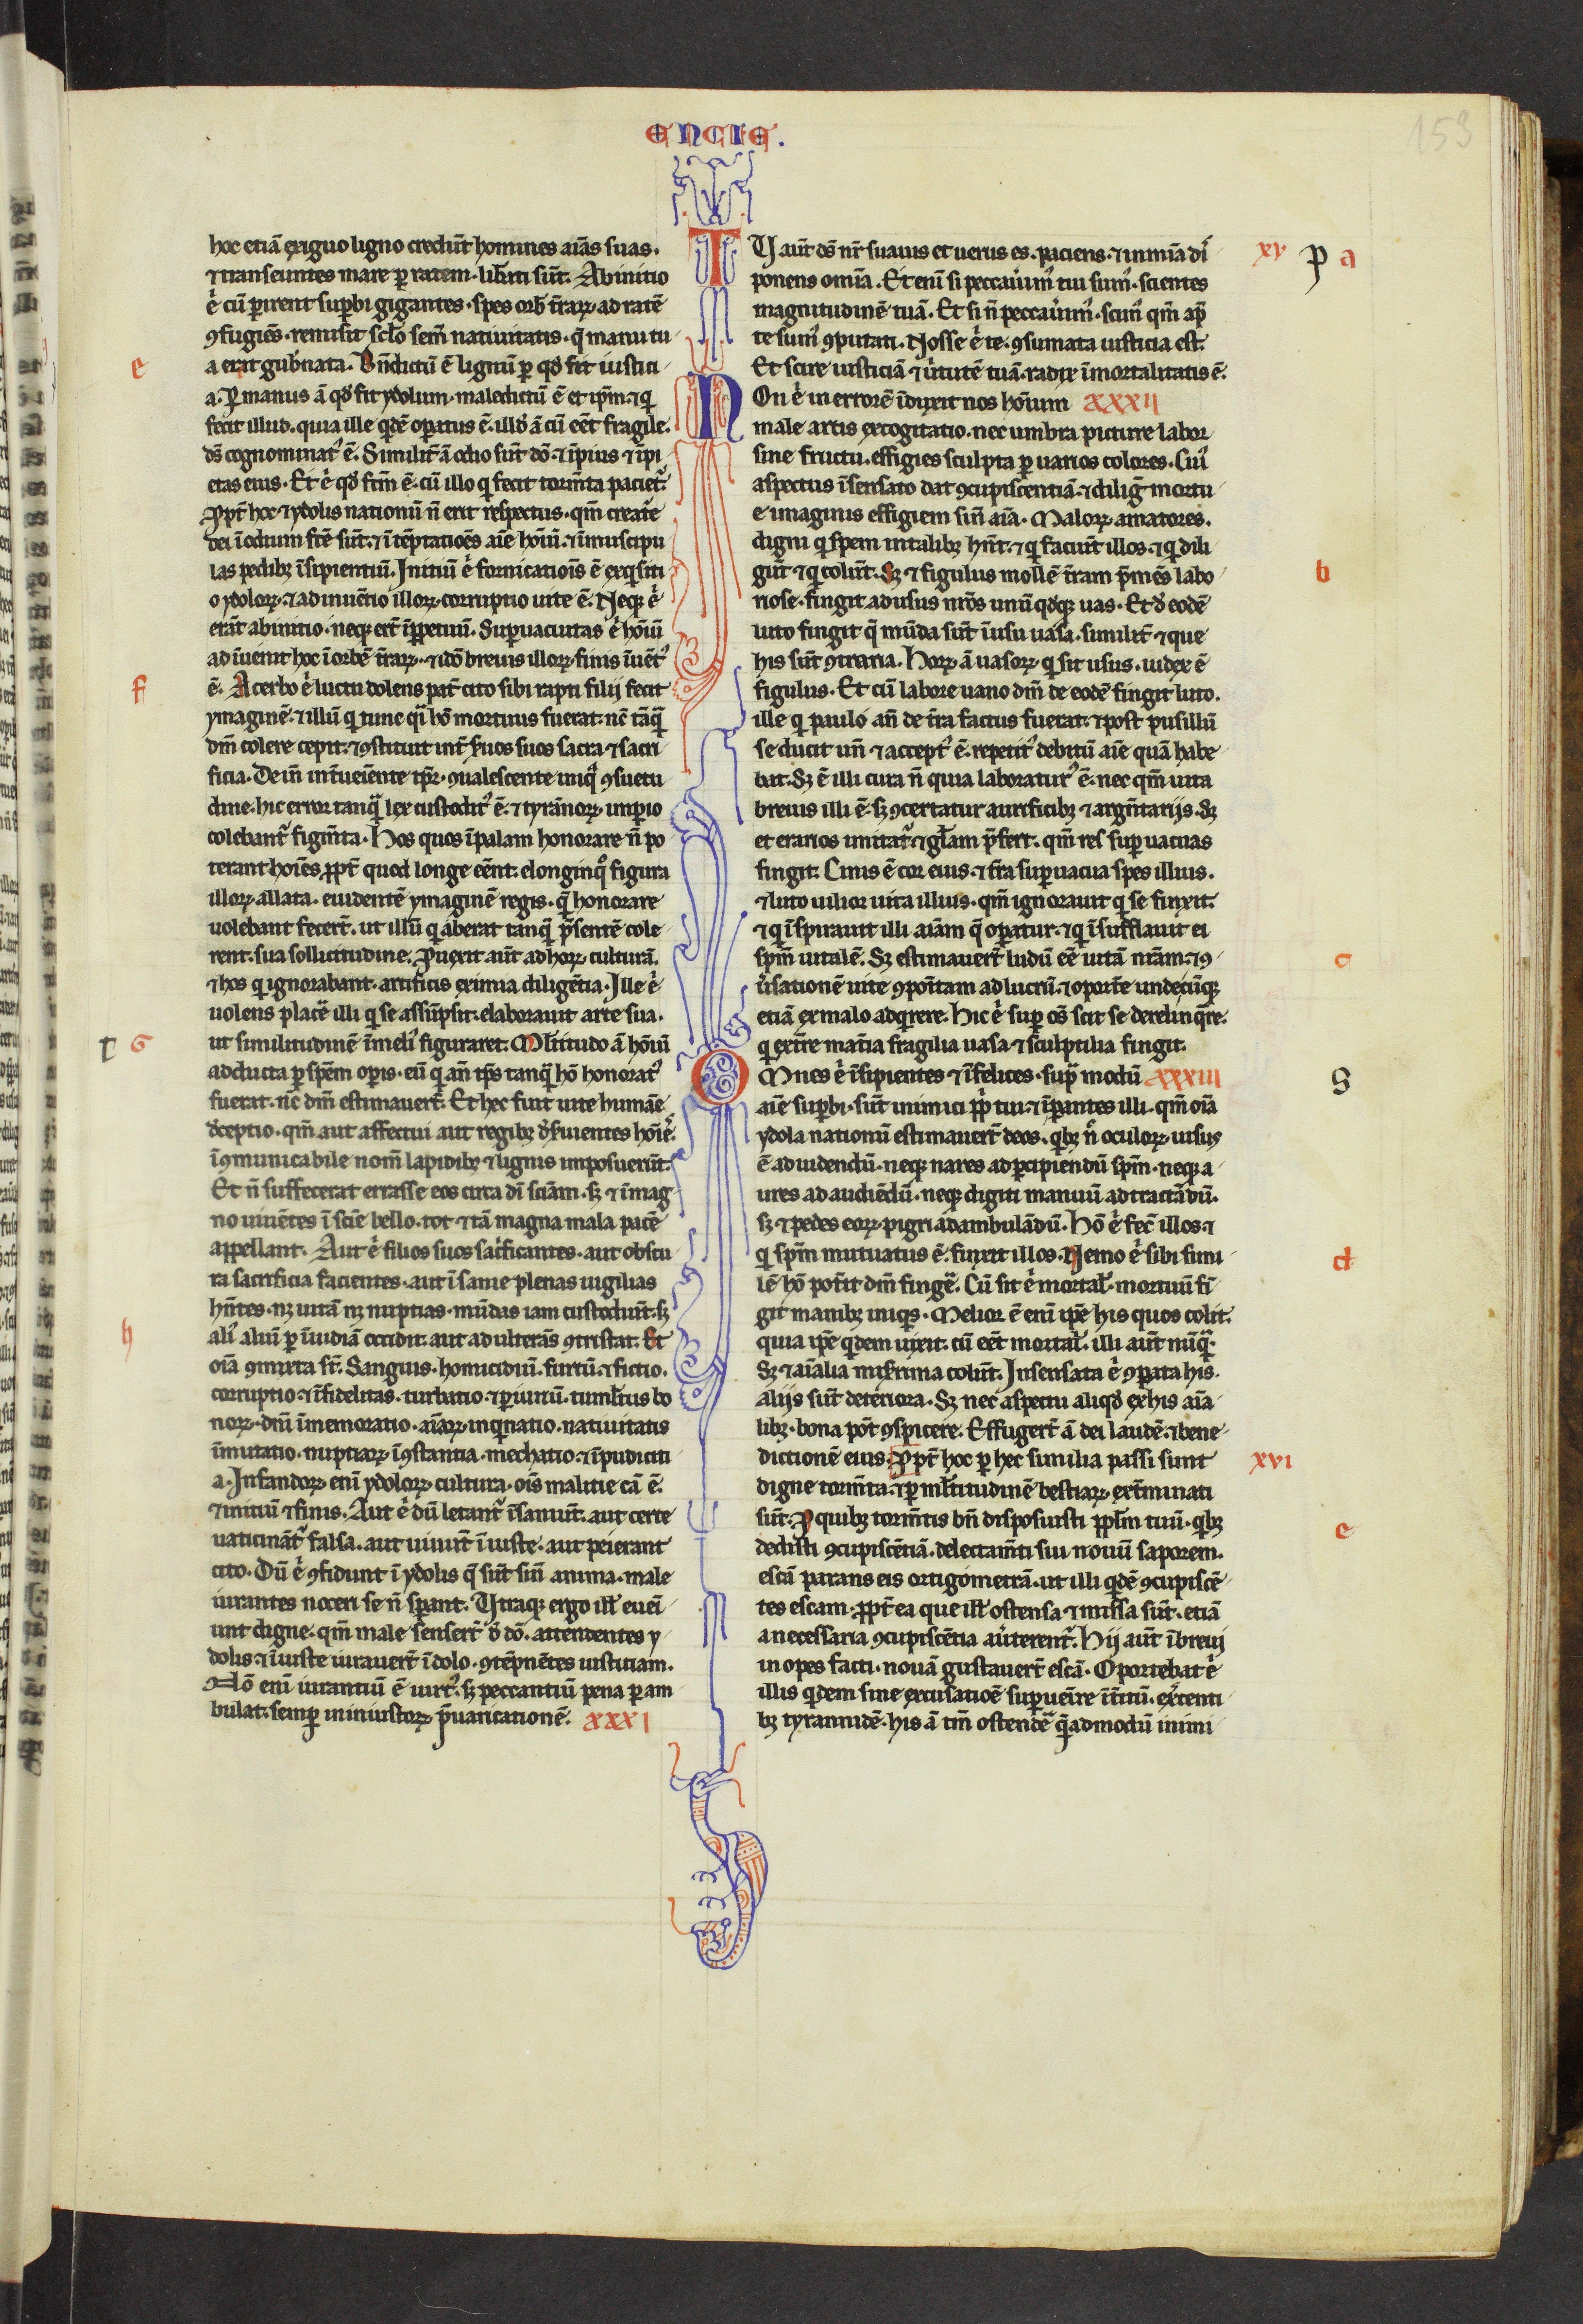 ENCIE.
153
hoc etiā exiguo ligno credūt homines aīas suas.
⁊ transeuntes mare ꝑ ratem. lib̄ati sūt. Ab initio
ē cū ꝑirent suꝑbi gigantes. spes orb̄ t̄raꝝ ad ratē
ꝯfugiēs. remisit sclo sem̄ natiuitatis. q̄ manu tu
a erat gub̄nata. Bn̄dictū ē lignū ꝑ qd̄ fit iustici
a. Ꝑ manus ā qd̄ fit ydolum. maledictū ē et ip̄m. ⁊ q̇
fecit illud. quia ille q̇dē oꝑatus ē. illd̓ ā cū eēt fragile.
d̄s cognominat᷒ ē. Similit̄ ā odio sūt dō. ⁊ īpius ⁊ īpi
etas eius. Et ē qd̄ fc̄m ē. cū illo q̇ fecit torm̄ta paciet᷒.
Ꝓpt̄ hoc ⁊ ydolis nationū n̄ erit respectus. qm̄ creat̄e
dei ī odium fc̄e sūt. ⁊ ī tēptatiōes aīe hōiū. ⁊ ī muscipu
las pedibꝫ īsipientiū. Initiū ē fornicatiōis ē exq̇siti
o ydoloꝝ. ⁊ adinuētio illoꝝ. corruptio uite ē. Neqꝫ ē
erāt ab initio. neqꝫ er̄t īꝑpetuū. Suꝑuacuitas ē hōiū
adīuenit hoc ī orbē t̄raꝝ. ⁊ iđo breuis illoꝝ finis īuēt᷒
ē. Acerbo ē luctu dolens pat̄ cito sibi rapti filij fecit
ymaginē. ⁊ illū q̇ tunc q̄i hō mortuus fuerat. nc̄ tāq̄
dm̄ colere cepit. ⁊ ꝯstituit int̄ s̄uos suos sacra ⁊ sacri
ficia. Dein̄ int̄ueīente tp̄r. ꝯualescente iniq̄ ꝯsuetu
dine. hic error tanq̄ lex custodit᷒ ē. ⁊ tyrānoꝝ imꝑio
colebant᷒ figm̄ta. Hos quos īpalam honorare n̄ po
terant hoīes. ꝓpt̄ quod longe eēnt. e longinq̊ figura
illoꝝ allata. euidentē ymaginē regis. q̄ honorare
uolebant fecert̄. ut illū q̇ aberat tanq̄ p̄sentē cole
rent. sua sollicitudine. Ꝓuexit aūt ad hoꝝ culturā.
⁊ hos q̇ ignorabant. artificis eximia diligētia. Ille ē
uolens plac̄e illi q̇ se assūpsit. elaborauit arte sua.
ut similitudinē ī meli᷒ figuraret. Ml̄titudo ā hōiū
adducta ꝑ spēm oꝑis. eū q̇ an̄ tp̄s tanq̄ hō honorat᷒
fuerat. nc̄ dm̄ estimauert̄. Et hec fuit uite humāe
d̓ceptio. qm̄ aut affectui aut regibꝫ d̓s̄uientes hoīes.
īꝯmunicabile nom̄ lapidibꝫ ⁊ lignis imposuerūt.
Et n̄ suffecerat errasse eos circa dī sciām. sꝫ ⁊ ī mag
no uiuētes ī scīe bello. tot ⁊ tā magna mala pacē
appellant. Aut ē filios suos sac̓ficantes. aut obscu
ra sacrificia facientes. aut īsanie plenas uigilias
hn̄tes. nꝫ uitā nꝫ nuptias. mūdas iam custodiūt. sꝫ
ali᷒ aliū ꝑ īuidiā occidit. aut adulterās ꝯtristat. Et
oīa ꝯmixta st̄. Sanguis. homicidiū. furtū. ⁊ fictio.
corruptio. ⁊ īfidelitas. turbatio. ⁊ ꝑiuriū. tumlt̄us bo
noꝝ. dn̄i īmemoratio. aīaꝝ inq̇natio. natiuitatis
īmutatio. nuptiaꝝ īꝯstantia. mechatio. ⁊ īpudiciti
a. Infandoꝝ enī ydoloꝝ cultura. oīs malitie cā ē.
⁊ initiū ⁊ finis. Aut ē dū letant᷒ īsaniūt. aut certe
uaticināt᷒ falsa. aut uiuūt īiuste. aut peierant
cito. Dū ē ꝯfidunt ī ydolis q̄ sūt sin̄ anima. male
iurantes noceri se n̄ sꝑant. Utraqꝫ ergo ill̄ eueī
unt digne. qm̄ male senser̄t d̓ dō. attendentes y
dolis. ⁊ īiuste iurauer̄t ī dolo. ꝯtēpnētes iusticiam.
Nō enī iurantiū ē uirt᷒. sꝫ peccantiū pena ꝑam
bulat. semꝑ in iniustoꝝ p̄uaricationē. XXXI
TU aūt d̄s nr̄ suauis et uerus es. paciens. ⁊ in mīa di᷒
ponens omīa. Et enī si peccau̓im᷒ tui sum᷒. scientes
magnitudinē tuā. Et si n̄ peccau̓im᷒. scim᷒ qm̄ ap̄
te sum᷒ ꝯputati. Nosse ē te. ꝯsumata iusticia est.
Et scire iusticiā ⁊ u̓tutē tuā. radix īmortalitatis ē.
NOn ē in errorē īduxit nos hōium XXXII
male artis excogitatio. nec umbra picture labor
sine fructu. effigies sculpta ꝑ uarios colores. Cui᷒
aspectus īsensato dat ꝯcupiscentiā. ⁊ diliḡ mortu
e imaginis effigiem sin̄ aīa. Maloꝝ amatores.
digni q̇ spem in talibꝫ hn̄t. ⁊ q̇ faciūt illos. ⁊ q̇ dili
gūt ⁊ q̇ colūt. Sꝫ ⁊ figulus mollē t̄ram p̄mēs labo
riose. fingit ad usus nr̄os unū qd̄qꝫ uas. Et d̓ eodē
luto fingit q̄ mūda sūt ī usu uasa. similit̄ ⁊ que
his sūt ꝯtraria. Hoꝝ ā uasoꝝ q̇ sit usus. iudex ē
figulus. Et cū labore uano dm̄ de eodē fingit luto.
ille q̇ paulo an̄ de t̄ra factus fuerat. ⁊ post pusillū
se ducit un̄ ⁊ accept᷒ ē. repetit᷒ debitū aīe quā habe
bat. Sꝫ ē illi cura n̄ quia laboratur᷒ ē. nec qm̄ uita
breuis illi ē. sꝫ ꝯcertatur aurificibꝫ ⁊ argn̄tarijs. Sꝫ
et erarios imitat᷒. ⁊ gl̄am p̄fert. qm̄ res suꝑuacuas
fingit. Cinis ē cor eius. ⁊ t̄ra suꝑuacua spes illius.
⁊ luto uilior uita illius. qm̄ ignorauit q̇ se finxit.
⁊ q̇ īspirauit illi aīam q̄ oꝑatur. ⁊ q̇ īsufflauit ei
spm̄ uitalē. Sꝫ estimauer̄t ludū eē uitā nr̄am. ⁊ ꝯ
u̓sationē uite ꝯpoītam ad lucrū. ⁊ oport̄e undecūqꝫ
etiā ex malo adq̇rere. Hic ē suꝑ oēs scit se derelinq̄re.
q̇ ext̄re mat̄ia fragilia uasa ⁊ sculptilia fingit.
OMnes ē īsipientes ⁊ īfelices. sup̄ modū XXXIII
aīe suꝑbi. sūt inimici pp̄li tui. ⁊ īꝑantes illi. qm̄ oīa
ydola nationū estimauer̄t deos. q̇bꝫ n̄ oculoꝝ uisus
ē ad uidendū. neqꝫ nares ad ꝑcipiendū spm̄. neqꝫ a
ures ad audiēdū. neqꝫ digiti manuū ad tractādū.
sꝫ ⁊ pedes eoꝝ pigri ad ambulādū. Hō ē fec̄ illos. ⁊
q̇ spm̄ mutuatus ē. finxit illos. Nemo ē sibi simi
lē hō pot̄it dm̄ fing̓e. Cū sit ē mortal̄. mortuū fī
git manibꝫ iniq̇s. Melior ē enī ip̄e his quos colit.
quia ip̄e q̇dem uixit. cū eēt mortal̄. illi aūt nūq̄.
Sꝫ ⁊ aīalia mis̄rima colūt. Insensata ē ꝯꝑata his.
alijs sūt deteriora. Sꝫ nec aspectu aliqd̄ ex his aīa
libꝫ. bona pōt ꝯspicere. Effugert̄ ā dei laudē. ⁊ bene
dictionē eius. Ꝓpt̄ hoc ꝑ hec similia passi sunt
digne torm̄ta. ⁊ ꝑ ml̄titudinē bestiaꝝ ext̄minati
sūt. Ꝓ quibꝫ torm̄tis bn̄ disposuisti pp̄lm̄ tuū. q̇bꝫ
dedisti ꝯcupiscētiā. delectam̄ti sui nouū saporem.
escā parans eis ortigometrā. ut illi q̇dē ꝯcupiscē
tes escam. ꝓpt̄ ea que ill̄ ostensa ⁊ missa sūt. etiā
a necessaria ꝯcupiscētia au̓terent᷒. Hij aūt ī breui
inopes facti. nouā gustauer̄t escā. Oportebat ē
illis q̇dem sine excusatiōe suꝑueīre īt̄itū. ex̄centi
bꝫ tyrannidē. his ā tm̄ ostend̓e q̄admodū inimi
e
f
t G
h
xv p a
b
c
S
d
xvi
e